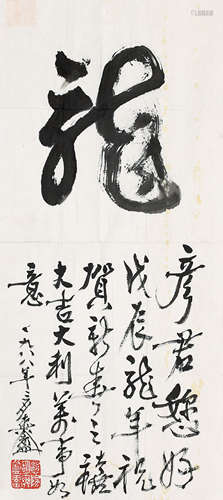 龍
彦君恕好
戊辰龍年祝
賀新春之禧
大吉大利萬事如
意
一九八八年